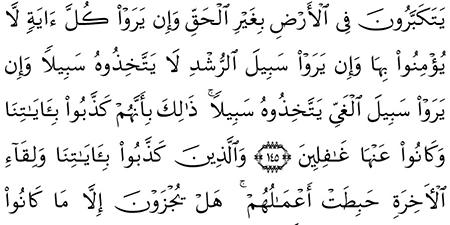 يَتَكَبَّرُونَ فِى ٱلْأَرْضِ بِغَيْرِ ٱلْحَقِّ وَإِن يَرَوْا۟ كُلَّ ءَايَةٍ لَّا
يُؤْمِنُوا۟ بِهَا وَإِن يَرَوْا۟ سَبِيلَ ٱلرُّشْدِ لَا يَتَّخِذُوهُ سَبِيلًا وَإِن
يَرَوْا۟ سَبِيلَ ٱلْغَىِّ يَتَّخِذُوهُ سَبِيلًا ۚ ذَٰلِكَ بِأَنَّهُمْ كَذَّبُوا۟ بِـَٔايَـٰتِنَا
وَكَانُوا۟ عَنْهَا غَـٰفِلِينَ ١٤٥ وَٱلَّذِينَ كَذَّبُوا۟ بِـَٔايَـٰتِنَا وَلِقَآءِ
ٱلْـَٔاخِرَةِ حَبِطَتْ أَعْمَـٰلُهُمْ ۚ هَلْ يُجْزَوْنَ إِلَّا مَا كَانُوا۟